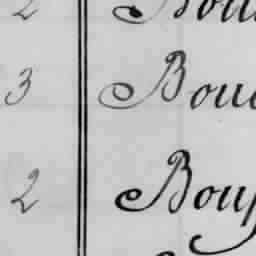 2 Bou
3 Bou
2 Bou